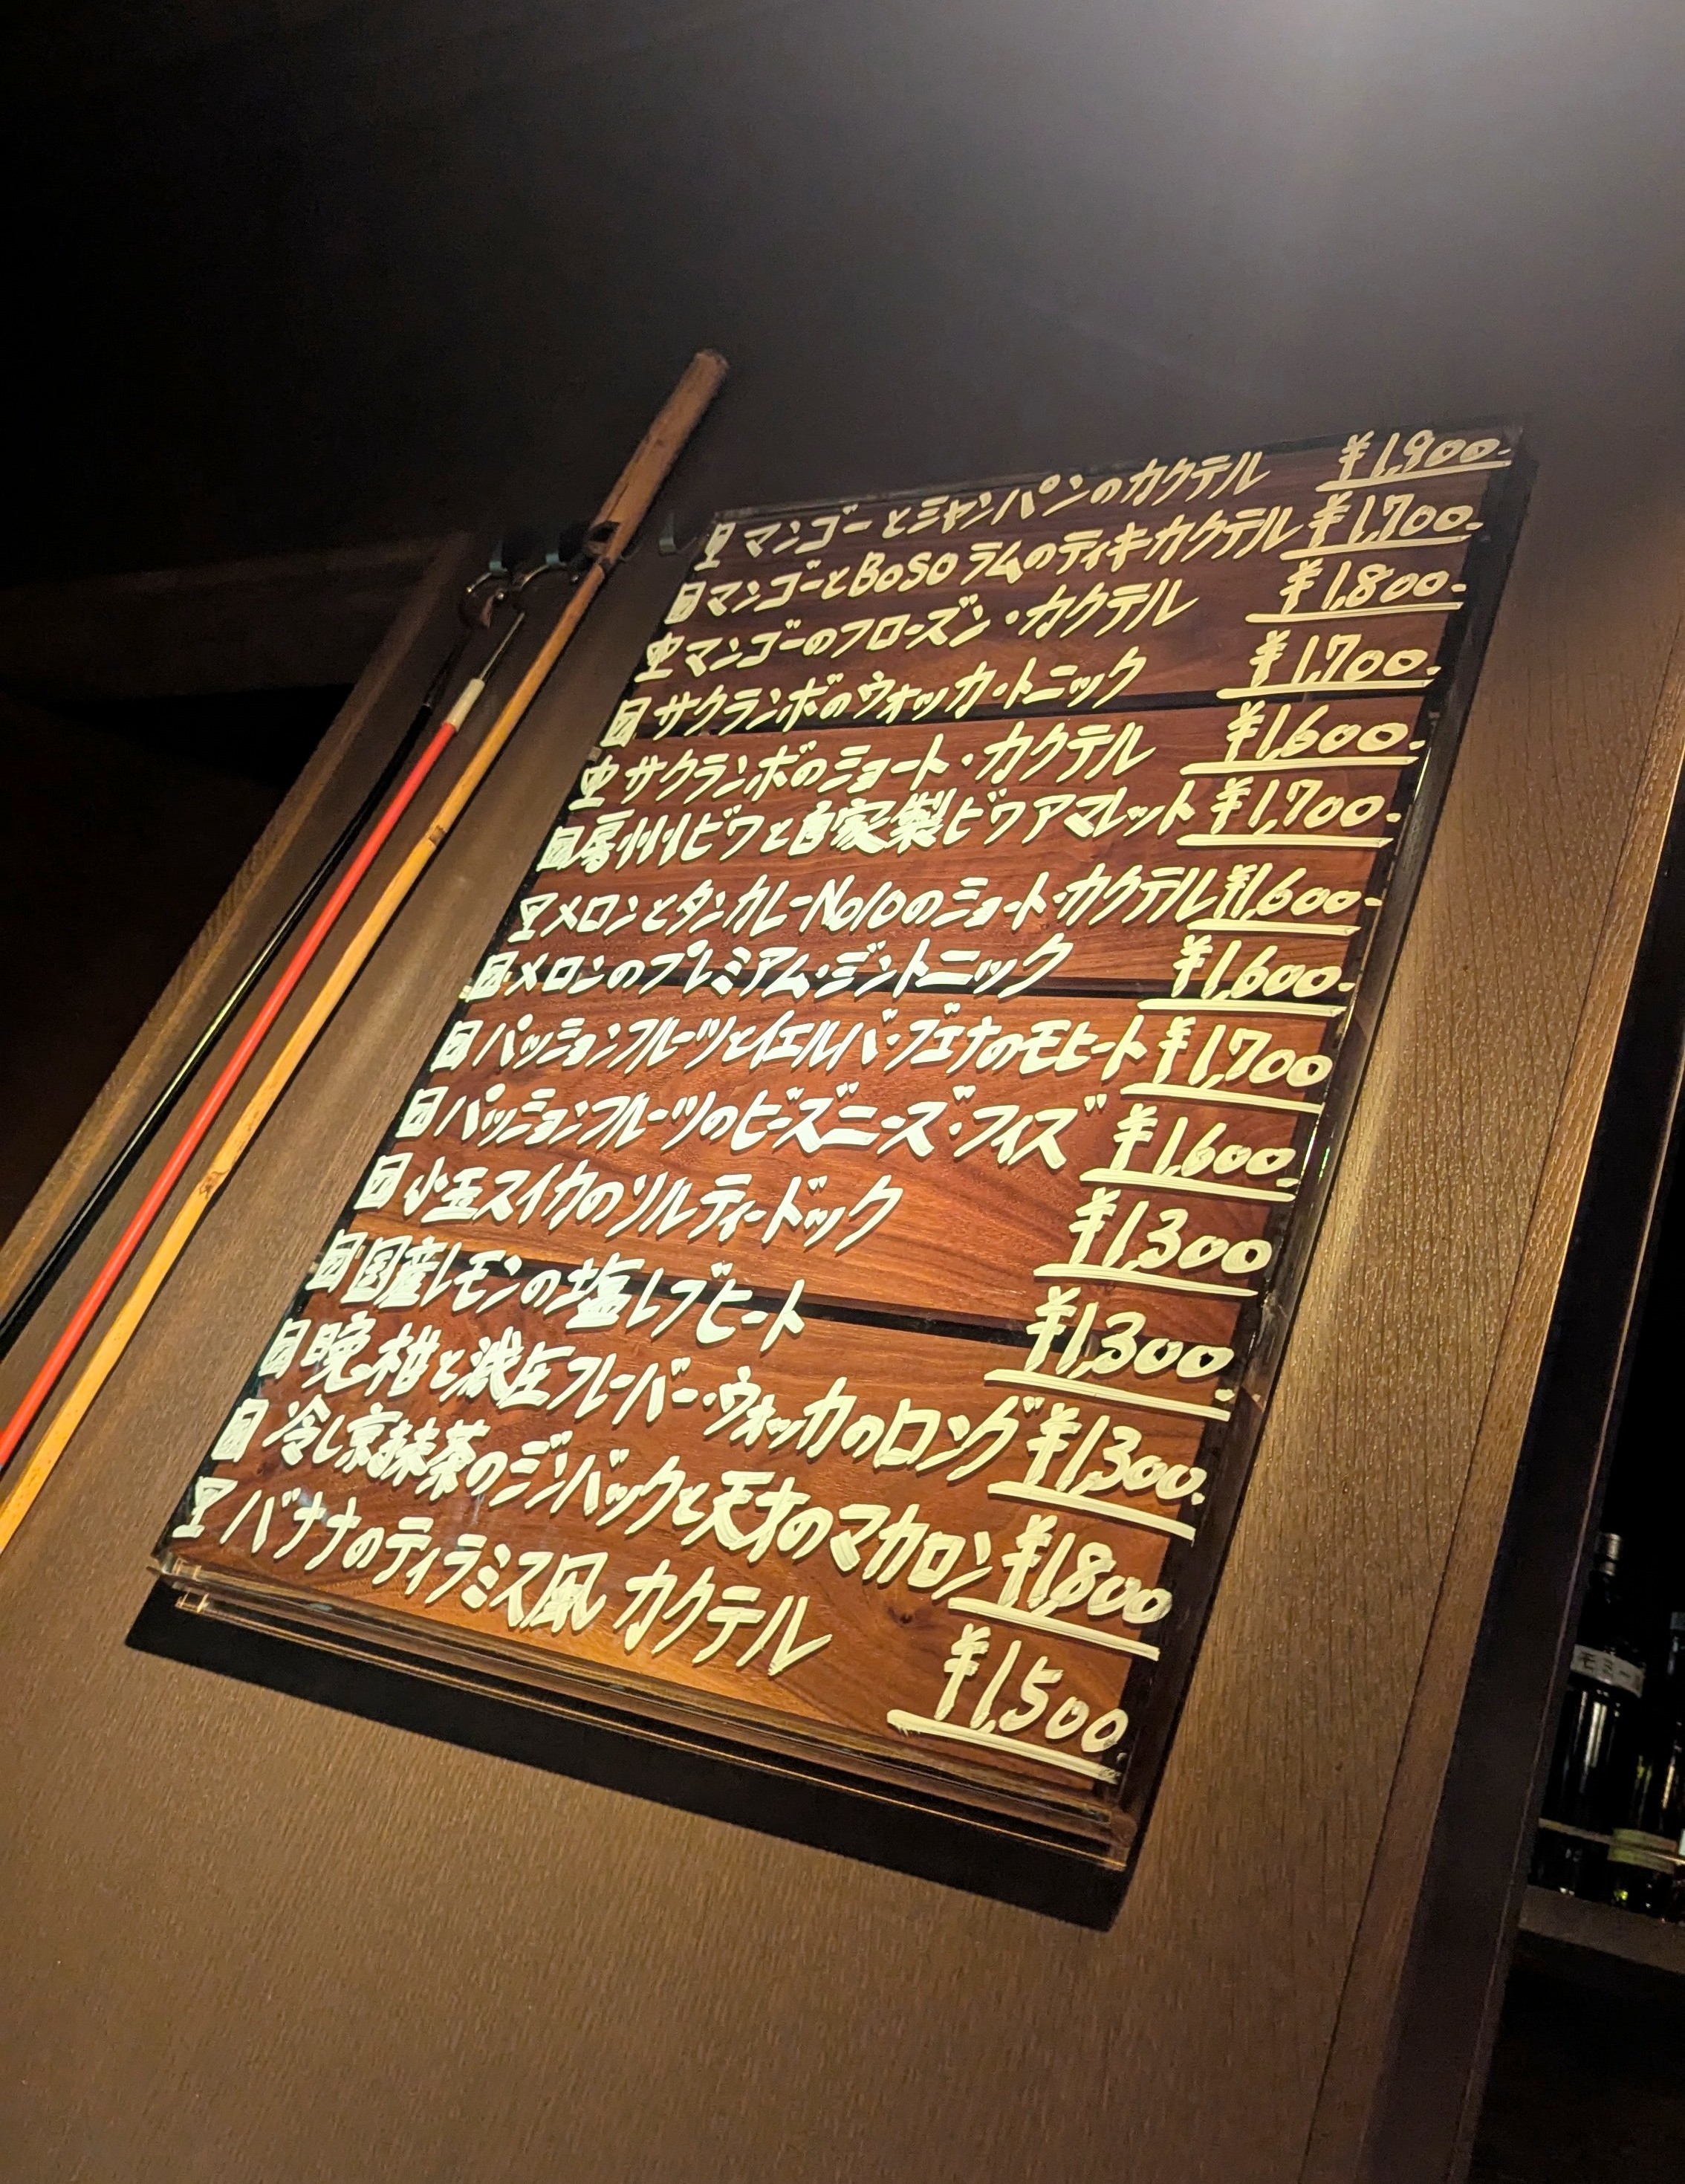 マンゴーとシャンパンのカクテル ¥1,900-
マンゴーとBOSOラムのティキカクテル ¥1,700-
マンゴーのフローズン・カクテル ¥1,800-
サクランボのウォッカ・トニック ¥1,700-
サクランボのショート・カクテル ¥1,600-
房州ビワと自家製ビワアマレット ¥1,700-
メロンとタンカレーNo10のショート・カクテル ¥1,600-
メロンのプレミアム・ジントニック ¥1,600-
パッションフルーツとイエルバ・ブエナのモヒート ¥1,700
パッションフルーツのビーズニーズ・フィズ ¥1,600-
小玉スイカのソルティードック ¥1,300
国産レモンの塩レブヒート ¥1,300-
晩柑と減圧フレーバー・ウォッカのロング ¥1,300-
冷し京抹茶のジンバックと天才のマカロン ¥1,800
バナナのティラミス風カクテル ¥1,500-
モミー